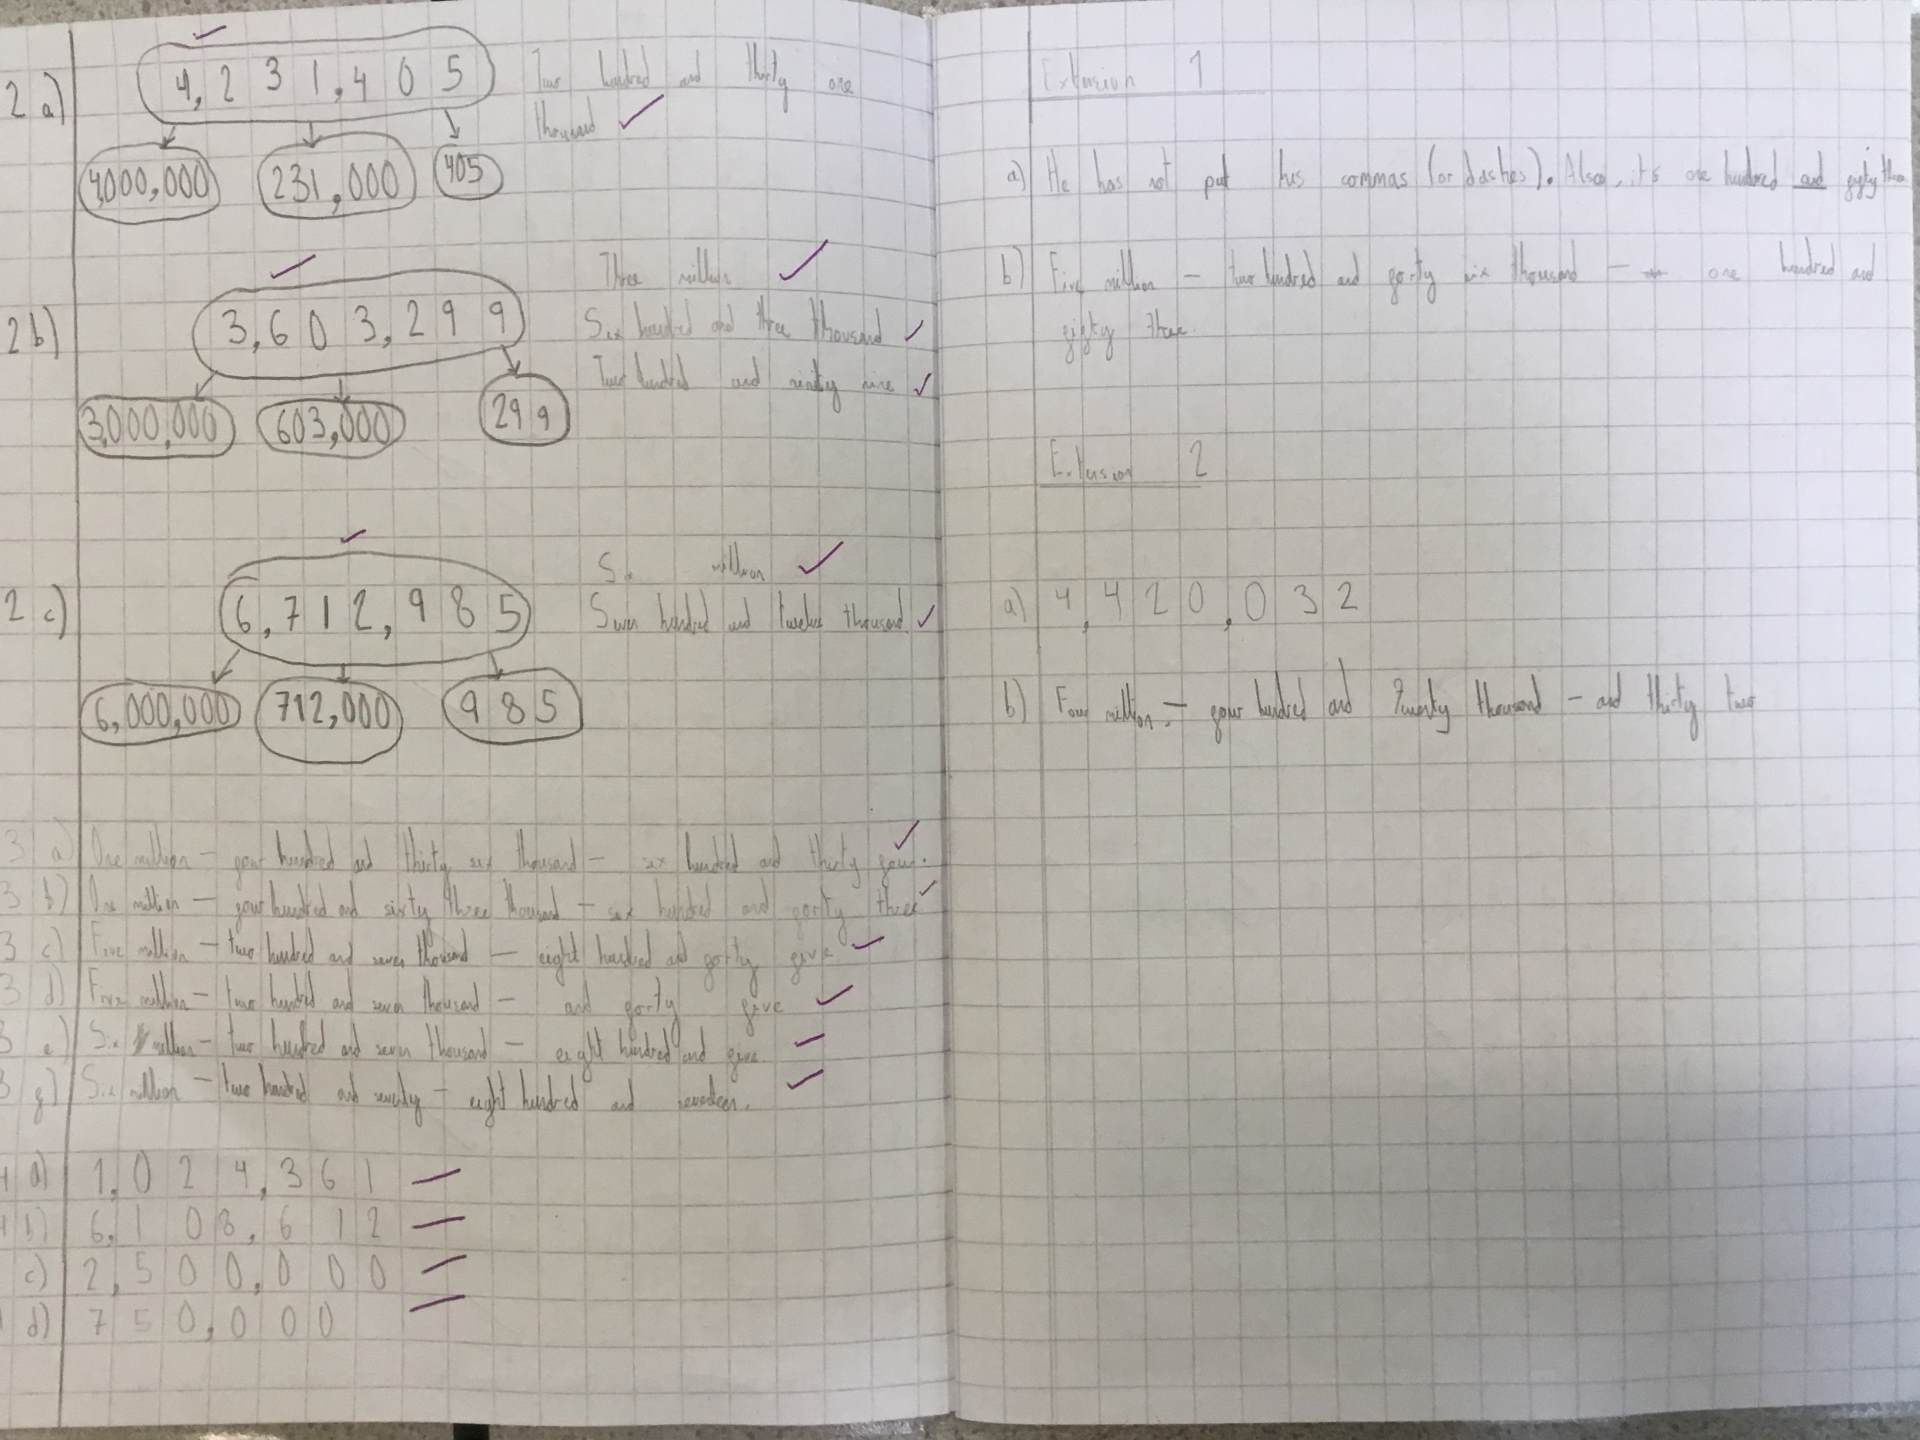 2 a) 4,231,405 Two hundred and thirty one
thousand
4,000,000 231,000 405
2 b) 3,603,299 Three million
Six hundred and three thousand
Two hundred and ninity nine
3,000,000 603,000 299
2 c) 6,712,985 Six million
Seven hundred and twelve thousand
6,000,000 712,000 985
3 a) One million - four hundred and thirty six thousand - six hundred and thirty four.
3 b) One million - four hundred and sixty three thousand - six hundred and forty three
3 c) Five million - two hundred and seven thousand - eight hundred and forty five
3 d) Five million - two hundred and seven thousand - and forty five
3 e) Six million - two hundred and seven thousand - eight hundred and five
3 f) Six million - two hundred and seventy - eight hundred and seventeen.
4 a) 1,024,361
4 b) 6,108,612
c) 2,500,000
d) 750,000
Extension 1
a) He has not put his commas (or dashes). Also, it's one hundred and fifty three
b) Five million - two hundred and forty six thousand - one hundred and
fifty three.
Extension 2
a) 4,420,032
b) Four million - four hundred and twenty thousand - and thirty two